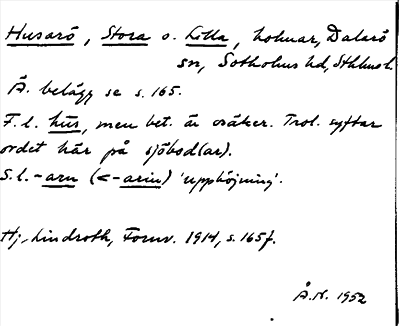 Husarö, Stora o. Lilla, holmar, Dalarö
sn, Sotholms hd, Sthlms l.
Ä. belägg se s. 165.
F.l. hūs, men bet. är osäker. Trol. syftar
ordet här på sjöbod(ar).
S.l. -arn (<-arin) 'upphöjning'.
Hj. Lindroth, Fornv. 1914, s. 165f.
Å.N. 1952